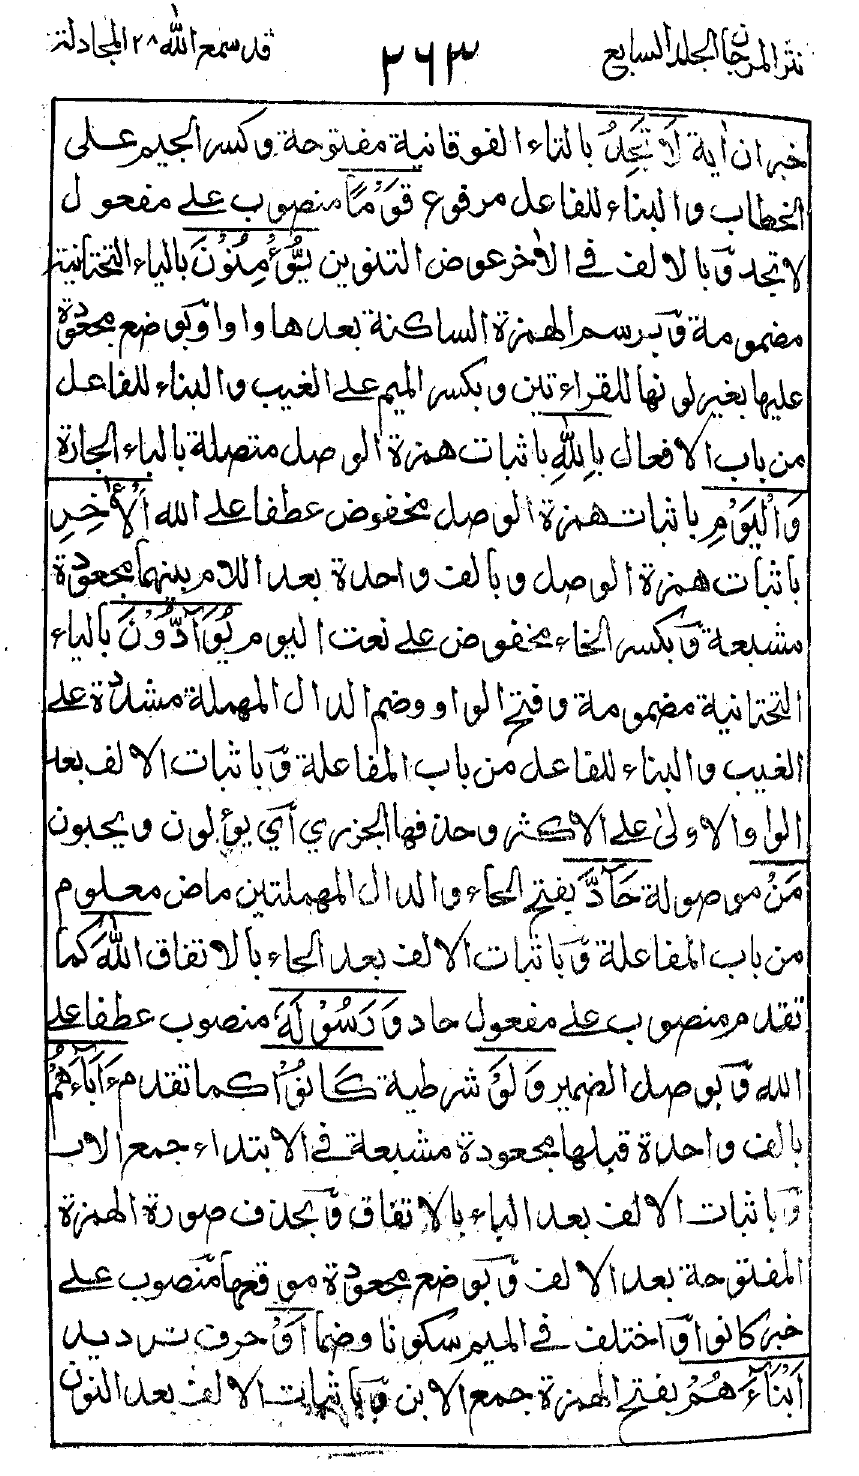 نثر المرجان الجلد السابع
٢٦٣
قد سمع الله ٢٨ المجادلة
خبر ان اية لَا تَجِدُ بالتاء الفوقانية مفتوحة وكسر الجيم على
الخطاب والبناء للفاعل مرفوع قَوْمًا منصوب على مفعول
لا تجد وبالالف في الاخر عوض التنوين يُّؤْمِنُوْنَ بالياء التحتانية
مضمومة وبرسم الهمزة الساكنة بعدها واوا وبوضع مجعودة
عليها بغير لونها للقراءتين وبكسر الميم على الغيب والبناء للفاعل
من باب الافعال بِاللّٰهِ باثبات همزة الوصل متصلة بالباء الجارة
وَالْيَوْمِ باثبات همزة الوصل مخفوض عطفا على الله الْاٰخِرِ
باثبات همزة الوصل وبالف واحدة بعد اللام بينهما مجعودة
مشبعة وبكسر الخاء مخفوض على نعت اليوم يُوَآدُّوْنَ بالياء
التحتانية مضمومة وفتح الواو وضم الدال المهملة مشددة على
الغيب والبناء للفاعل من باب المفاعلة وباثبات الالف بعد
الواو الاولى على الاكثر وحذفها الجزري أي يوٴلون ويحبون
مَنْ موصولة حَآدَّ بفتح الحاء والدال المهملتين ماض معلوم
من باب المفاعلة وباثبات الالف بعد الحاء بالاتفاق اللّٰهَ كما
تقدم منصوب على مفعول حاد وَرَسُوْلَهٗ منصوب عطفا على
الله وبوصل الضمير وَلَوْ شرطية كَانُوْٓا كما تقدم ءَابَآءَهُمْ
بالف واحدة قبلها مجعودة مشبعة في الابتداء جمع الاب
وباثبات الالف بعد الباء بالاتفاق وبحذف صورة الهمزة
المفتوحة بعد الالف وبوضع مجعودة موقعها منصوب على
خبر كانوا واختلف في الميم سكونا وضما اَوْ حرف ترديد
اَبْنَآءَهُمْ بفتح الهمزة جمع الابن وباثبات الالف بعد النون